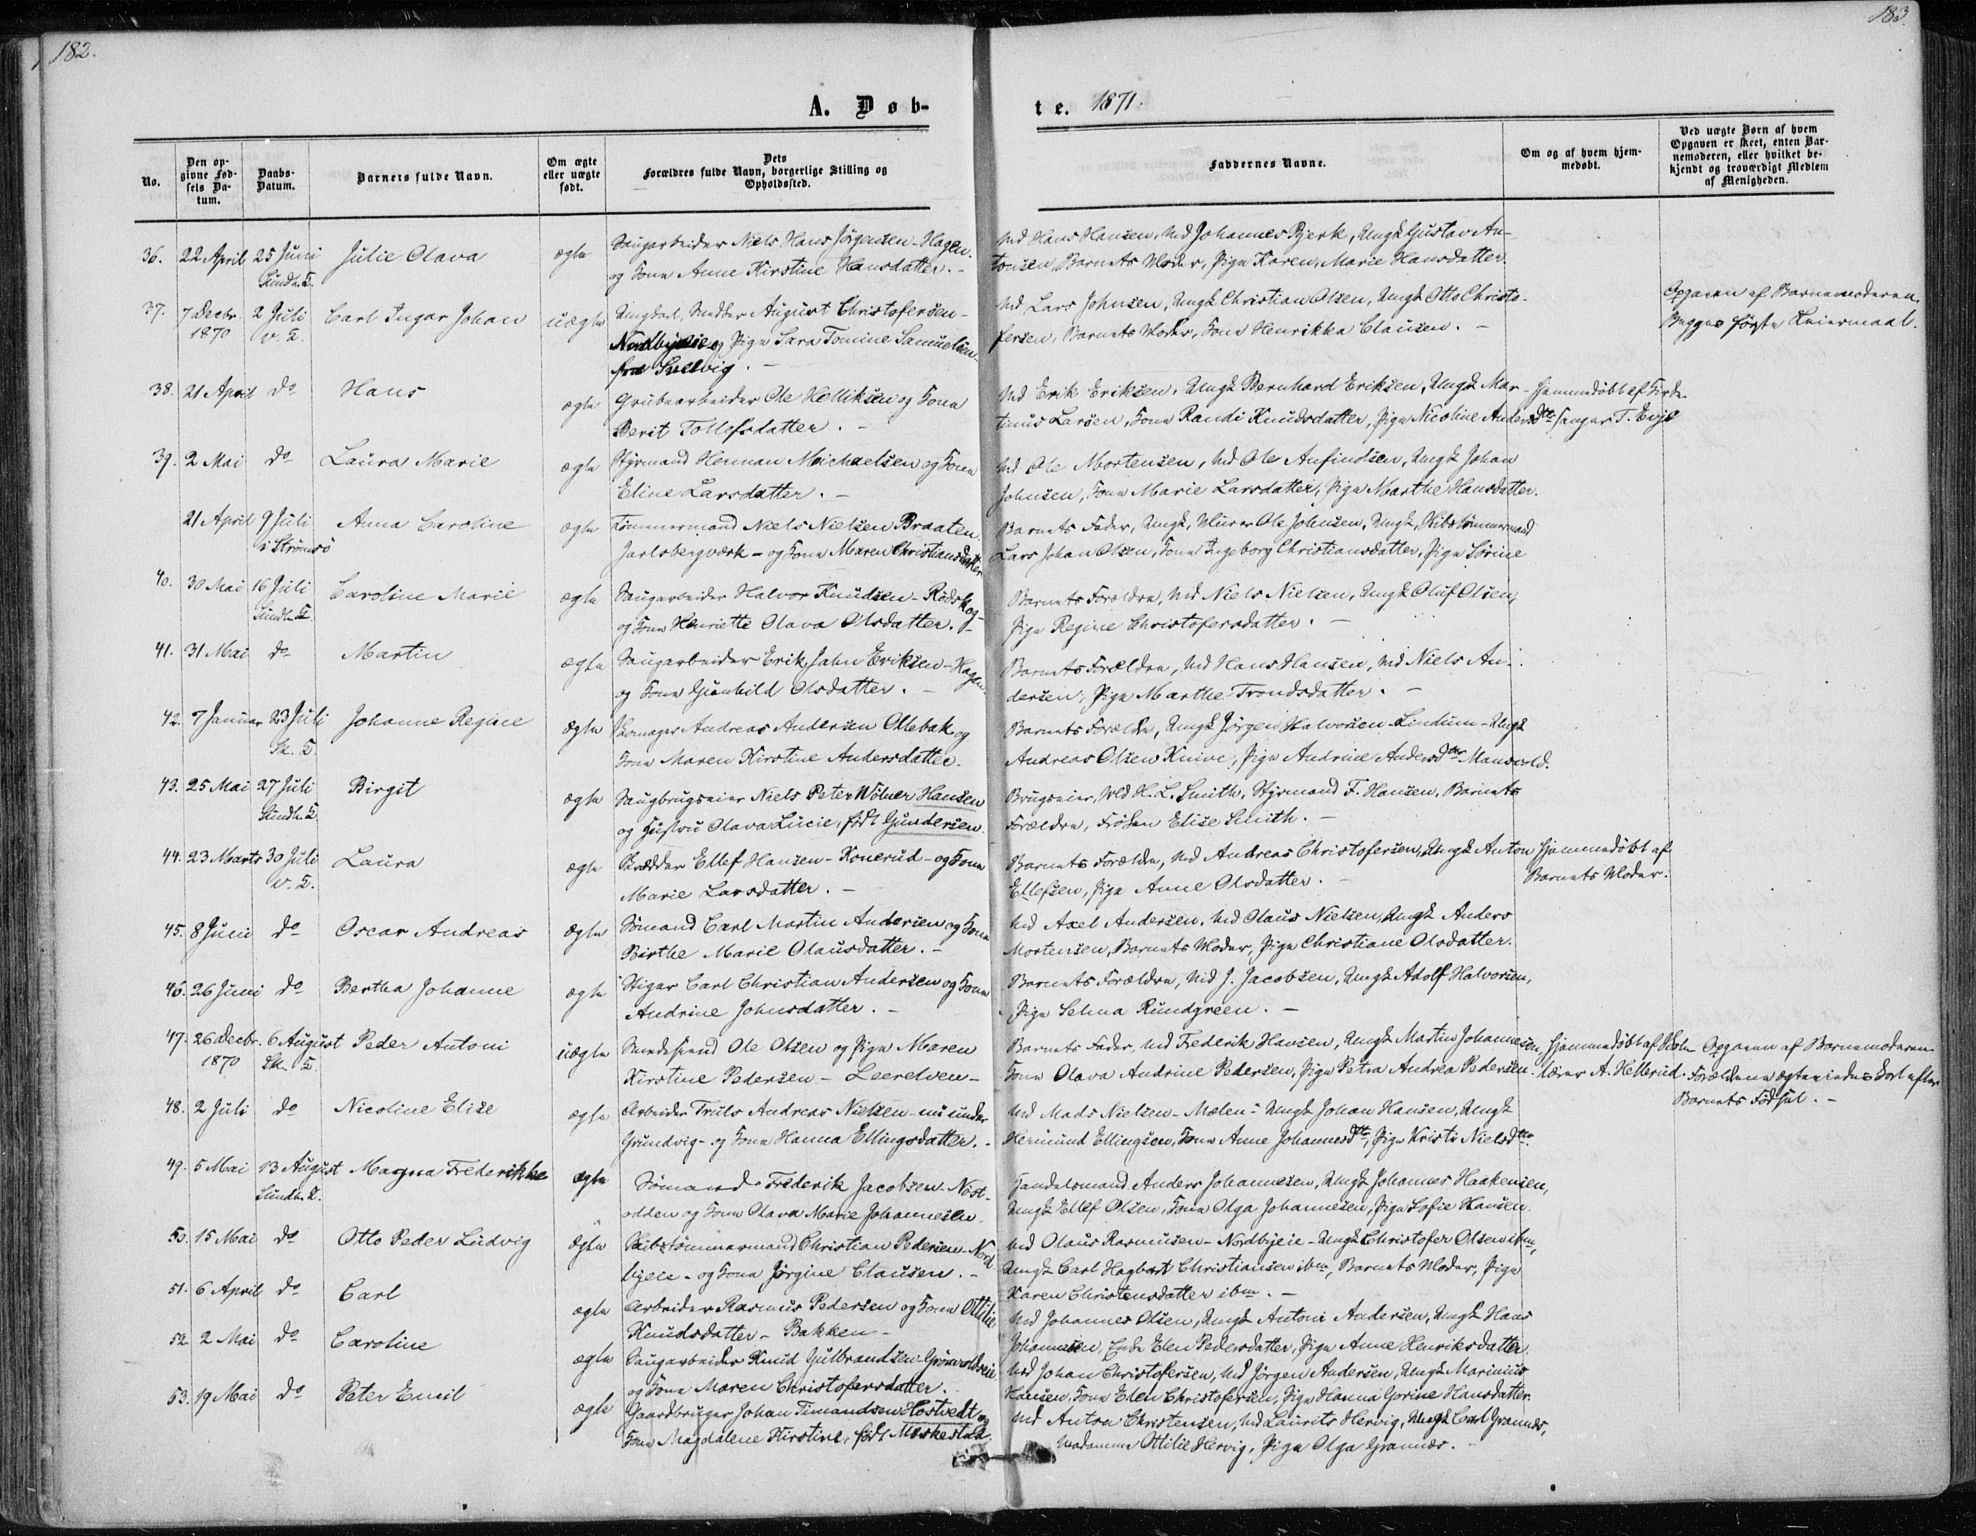 182.
183.
A. Døb-
te. 1871.
No.
Den op-
givne Fød-
sels Da-
tum.
Daabs-
Datum.
Barnets fulde Navn.
Om ægte
eller uægte
født.
Dets
Forældres fulde Navn, borgerlige Stilling og
Opholdssted.
Faddernes Navne.
Om og af hvem hjem-
medøbt.
Ved uægte Børn af hvem
Opgaven er skeet, enten Bar-
nemoderen, eller hvilket be-
kjendt og troværdigt Medlem
af Menigheden.
36. 22 April 25 Juni Julie Olava ægte Saugarbeider Niels Hans Jörgensen-Hagen. Ved Hans Hansen, Ved Johannes Bjerk, Ungk Gustav An-
Sundh. T. og Kone Anne Kirstine Hansdatter.- tonsen, Barnets Moder, Pige Karen Marie Hansdatter.
37. 7 Decbr. 2 Juli Carl Ingar Johan uægte Ungkarl, August Christofersen- Ved Lars Johnsen, Ungk Christian Olsen, Ungk Otto Christo- Opgaven af Barnemoderen.
1870 v. T. Nordbyeie og Pige Sara Tomine Samuelsen- fersen, Barnets Moder, Kone Henrikka Clausen. - Begges første Leiermaal.
fra Svelvig. -
38. 21 April do Hans ægte Grubearbeider Ole Helliksen og Kone Ved Erik Eriksen, Ungk Bernhard Eriksen, Ungk Mar- Hjemmedøbt af Kirke-
Berit Tollefsdatter. - tinus Larsen, Kone Randi Knudsdatter, Pige Nicoline Andersdtr sanger T. Eeje
39. 2 Mai do Laura Marie ægte Styrmand Herman Michaelsen og Kone Ved Ole Mortensen, Ved Ole Anfindsen, Ungk Johan
Eline Larsdatter. - Johnsen, Kone Marie Larsdatter, Pige Marthe Hansdatter.
21 April 9 Juli Anna Caroline ægte Tømmermand Niels Nielsen Braaten Barnets Fader, Ungk, Murer Ole Johnsen, Ungk, Skibstömmermand
i Strömsö Jarlsbergværk - og Kone Maren Christiansdatter Lars Johan Olsen, Kone Ingeborg Christiansdatter, Pige Sörine
40. 30 Mai 16 Juli Caroline Marie ægte Saugarbeider Halvor Knudsen - Rødskog- Barnets Forældre, Ved Niels Nielsen, Ungk Oluf Olsen,
Sundh. T. og Kone Henriette Olava Olsdatter. - Pige Regine Christofersdatter. -
41. 31 Mai do Martin ægte Saugarbeider Erik Jahn Eriksen-Hagen. Barnets Forældre, Ved Hans Hansen, Ved Niels An-
og Kone Gunhild Olsdatter. - dersen, Pige Marthe Trondsdatter. -
42. 7 Januar 23 Juli Johanne Regine ægte Skomager Andreas Andersen Ollebak og Barnets Forældre, Ungk Jörgen Halvorsen-Lindum-Ungk
Sk. T. Kone Maren Kirstine Andersdatter. Andreas Olsen Knive, Pige Andrine Andersdtr Mansvold.
43. 25 Mai 27 Juli Birgit ægte Saugbrugseier Niels Peter Wölner Hansen Brugseier, Ved H. L. Smith, Styrmand F. Hansen, Barnets
Sundh. T. og Hustru Olava Lucie, født Gundersen. Forældre, Frøken Elise Smith. -
44. 23 Marts 30 Juli Laura ægte Skrædder Ellef Hansen - Konerud - og Kone Barnets Forældre, Ved Andreas Christofersen, Ungk Anton Hjemmedøbt af
v. T. Marie Larsdatter. - Ellefsen, Pige Anne Olsdatter. - Barnets Moder.
45. 8 Juni do Oscar Andreas ægte Sömand Carl Martin Andersen og Kone Ved Axel Andersen, Ved Olaus Nielsen, Ungk Anders
Birthe Marie Olausdatter. - Mortensen, Barnets Moder, Pige Christiane Olsdatter.
46. 26 Juni do Bertha Johanne ægte Stiger Carl Christian Andersen og Kone Barnets Forældre, Ved J. Jacobsen, Ungk Adolf Halvorsen,
Andrine Johnsdatter. - Pige Selma Rundgreen. -
47. 26 Decbr. 6 August Peder Antoni uægte Ole Olsen og Pige Maren Barnets Fader, Ved Frederik Hansen, Ungk Martin Johannesen, Hjemmedøbt af Skole- Opgaven af Barnemoderen
1870 Sk. T. Kirstine Pedersen - Leerelven - Kone Olava Andrine Pedersen, Pige Petra Andrea Pedersen. lærer A. Hellerud. Forældrene ægteviedes kort efter
Barnets Fødsel. -
48. 2 Juli do Nicoline Elise ægte Arbeider Truls Andreas Nielsen - nu under Ved Mads Nielsen-Mælen- Ungk Johan Hansen, Ungk
Grundvig - og Kone Hanna Ellingsdatter. - Hermund Ellingsen, Kone Anne Johannesdtr, Pige Kristi Nielsdtr.
49. 5 Mai 13 August Magna Frederikke ægte Sømand Frederik Jacobsen Nøst- Handelsmand Anders Johannesen, Ungk Johannes Haakensen,
Sundh. T. odden og Kone Olava Marie Johannesen. Ungk Ellef Olsen, Kone Olga Johannesen, Pige Sofie Hansen.
50. 15 Mai do Otto Peder Ludvig ægte Skibstömmermand Christian Pedersen-Nord Ved Olaus Rasmusen - Nordbyeie - Ungk Christofer Olsen ibm,
byeie - og Kone Jörgine Clausen. - Ungk Carl Hagbart Christiansen ibm, Barnets Moder, Pige
Karen Christensdatter ibm. -
51. 6 April do Carl ægte Arbeider Rasmus Pedersen og Kone Ottilie Ved Johannes Olsen, Ungk Antoni Andersen, Ungk Hans
Knudsdatter - Bakken - Johannesen, Enke Elen Pedersdatter, Pige Anne Henriksdatter.
52. 2 Mai do Caroline ægte Saugarbeider Knud Gulbrandsen-Grönvoldeie Ved Johan Christofersen, Ved Jörgen Andersen, Ungk Marinius
og Kone Maren Christofersdatter. Hansen, Kone Elen Christofersen, Pige Hanna Gorine Hansdatter.
53. 19 Mai do Peter Emil ægte Gaardbruger Johan Timandsen Hostvedt og Ved Anton Christensen, Ved Laurits Hervig, Ungk Carl Grannes,
Kone Magdalene Kirstine, født Meskestad. Madamme Ottilie Hervig, Pige Olga Grannes. -